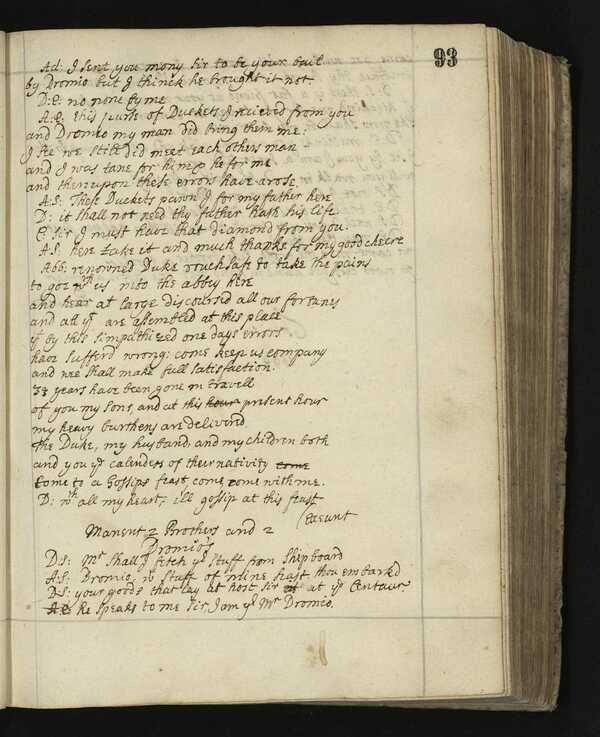 93
Ad: I sent you mony sir to be your bail
by Dromio but I thinck he brought it not.
D:E: no none by me
A:E: this purse of Duckets I recieved from you
and Dromio my man did bring them me:
I see we still did meet each others man
and I was tane for him, & he for me
and thereupon these errors have arose.
A:S: These Duckets pawn I for my father here
D: it shall not need thy father hath his life
C: Sir I must have that diamond from you.
A:S. here take it and much thanks for my good cheere
Abb: renowned Duke vouchsafe to take the pains
to goe wth us into the abbey here
and hear at large discoursed all our fortunes
and all yt are assembled at this place
yt by this simpathized one days errors
have sufferd wrong; come keep us company
and wee shall make full satisfaction.
33 years have been gone in travell
of you my sons, and at this hour present hour
my heavy burthens are delivered
the Duke, my husband, and my children both
and you ye calenders of their nativity come
Come to a Gossips feast, come, come with me.
D: wth all my heart, ill gossip at this feast
Exeunt
Manent 2 Brothers and 2
Dromio's
D:S: Mr shall I fetch ye stuff from Shipboard
A:S: Dromio, wt stuff of mine hast thou embarkd
D:S: your goods that lay at host sir at at ye Centaur
A:S: he speaks to me sir, I am yr Mr Dromio.